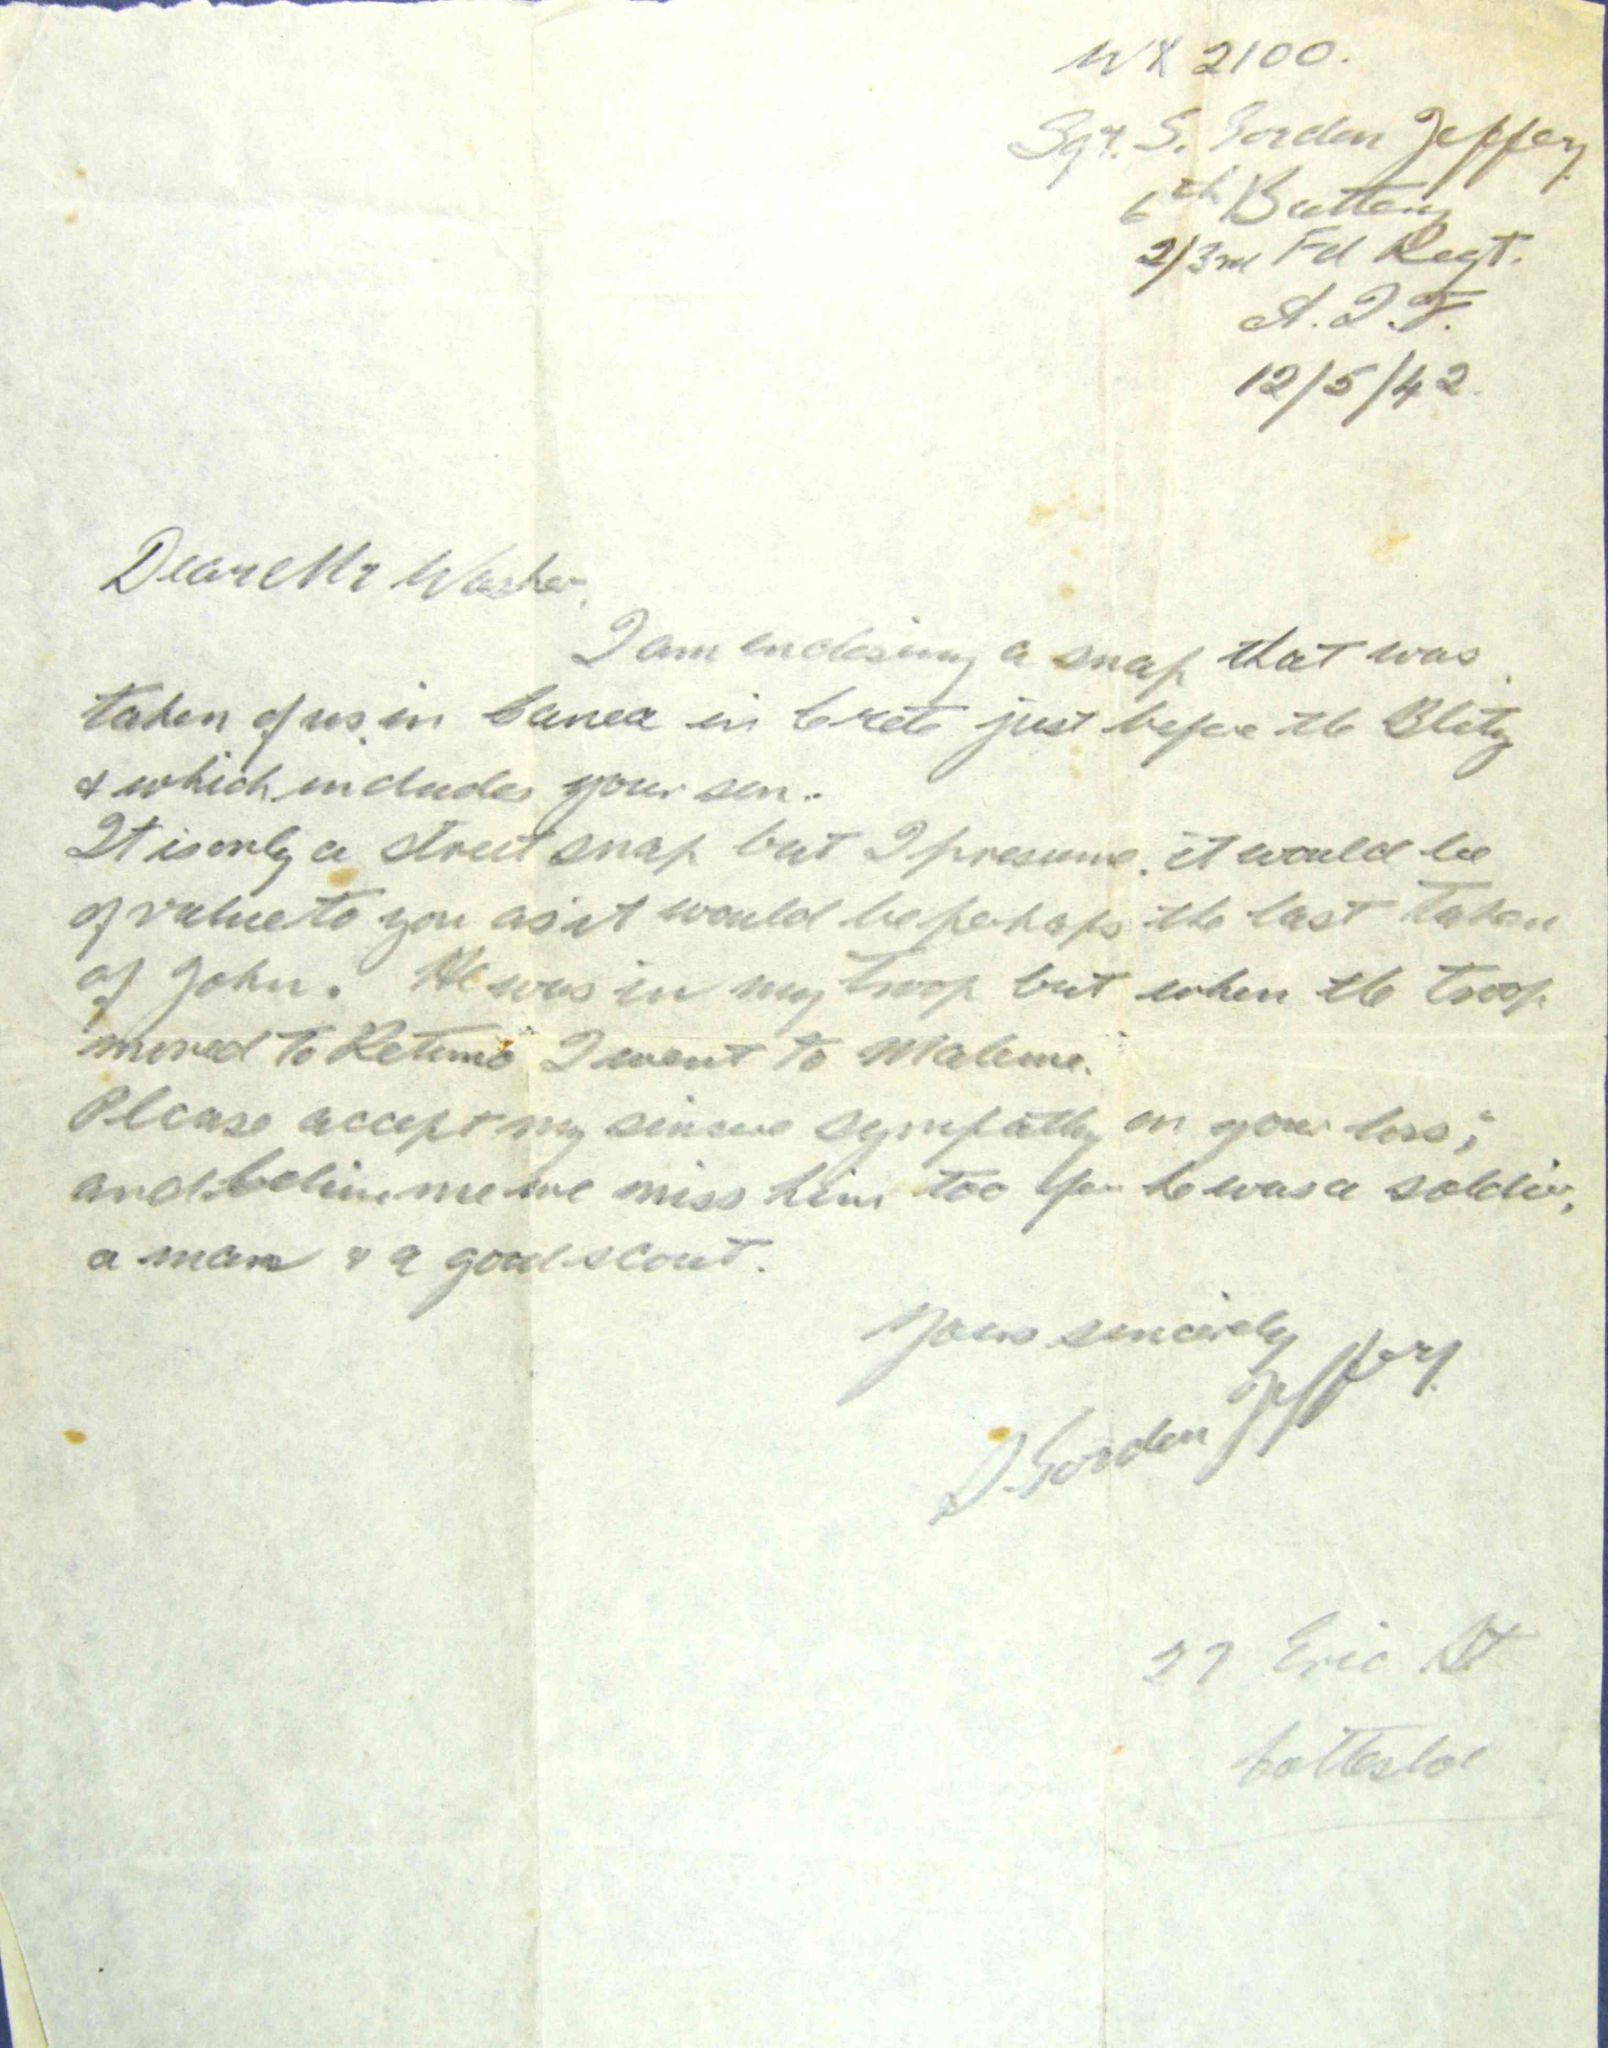 WX 2100.
Sgt. S. Gordon Jeffery
6th Battery
2/3rd Fd Regt.
A.I.F.
12/5/42.
Dear Mr
I am enclosing a snap that was
taken of us in Canea in Crete just before the Blitz
& which includes your son.
It is only a street snap but I presume it would be
of value to you as it would be perhaps the last taken
of John. He was in my troop but when the troop
moved to Retimo I went to Maleme.
Please accept my sincere sympathy on your loss;
and believe me we miss him too for he was a soldier,
a man & a good scout.
Yours sincerely
S. Gordon Jeffery.
27 Eric St
Cottesloe